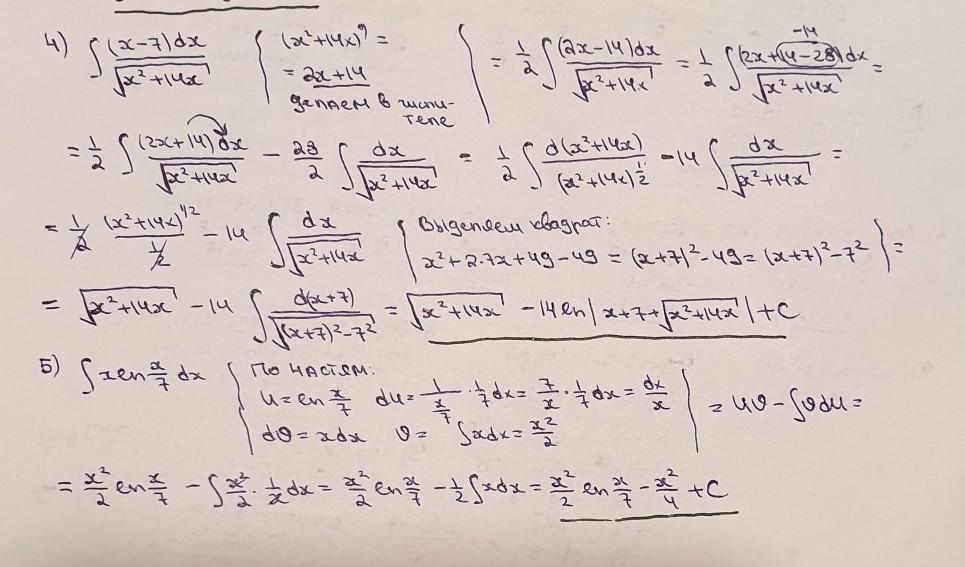 4) ∫ (x-7)dx / √(x²+14x) { (x²+14x)' = = 2x+14 делаем в числителе } = 1/2 ∫ (2x-14)dx / √(x²+14x) = 1/2 ∫ (2x+(14-28))dx / √(x²+14x) = -14
= 1/2 ∫ (2x+14)dx / √(x²+14x) - 28/2 ∫ dx / √(x²+14x) = 1/2 ∫ d(x²+14x) / (x²+14x)^(1/2) - 14 ∫ dx / √(x²+14x) =
= 1/2 (x²+14x)^(1/2) / (1/2) - 14 ∫ dx / √(x²+14x) { Выделяем квадрат: x²+2·7x+49-49 = (x+7)²-49 = (x+7)²-7² } =
= √(x²+14x) - 14 ∫ d(x+7) / √((x+7)²-7²) = √(x²+14x) - 14 ln|x+7+√(x²+14x)| + C
5) ∫ x ln x/7 dx { По частям: u = ln x/7 du = 1/(x/7) · 1/7 dx = 7/x · 1/7 dx = dx/x dv = x dx v = ∫ x dx = x²/2 } = uv - ∫ v du =
= x²/2 ln x/7 - ∫ x²/2 · 1/x dx = x²/2 ln x/7 - 1/2 ∫ x dx = x²/2 ln x/7 - x²/4 + C